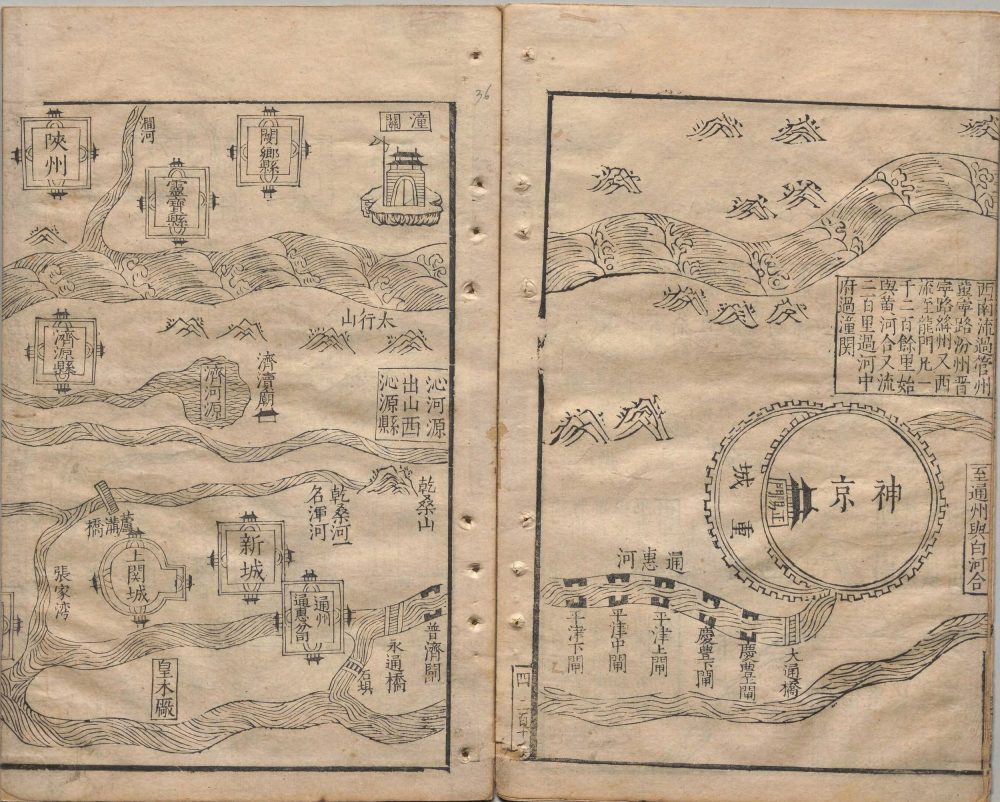 西南流過管州
冀寧路汾州晋
寧路絳州又西
流至龍門凡一
千二百餘里始
與黃河合又流
二百里過河中
府過潼関
至通州與白河合
神京
正陽門
重城
通惠河
大通橋
慶豐上閘
慶豐下閘
平津上閘
平津中閘
平津下閘
四
潼關
閿鄉縣
靈寶縣
澗河
陝州
太行山
濟瀆廟
濟河源
濟源縣
沁河源
出山西
沁源縣
乾桑山
乾桑河一
名渾河
蘆溝橋
新城
上関城
張家湾
通州
通惠分司
普濟閘
永通橋
石垻
皇木廠
36